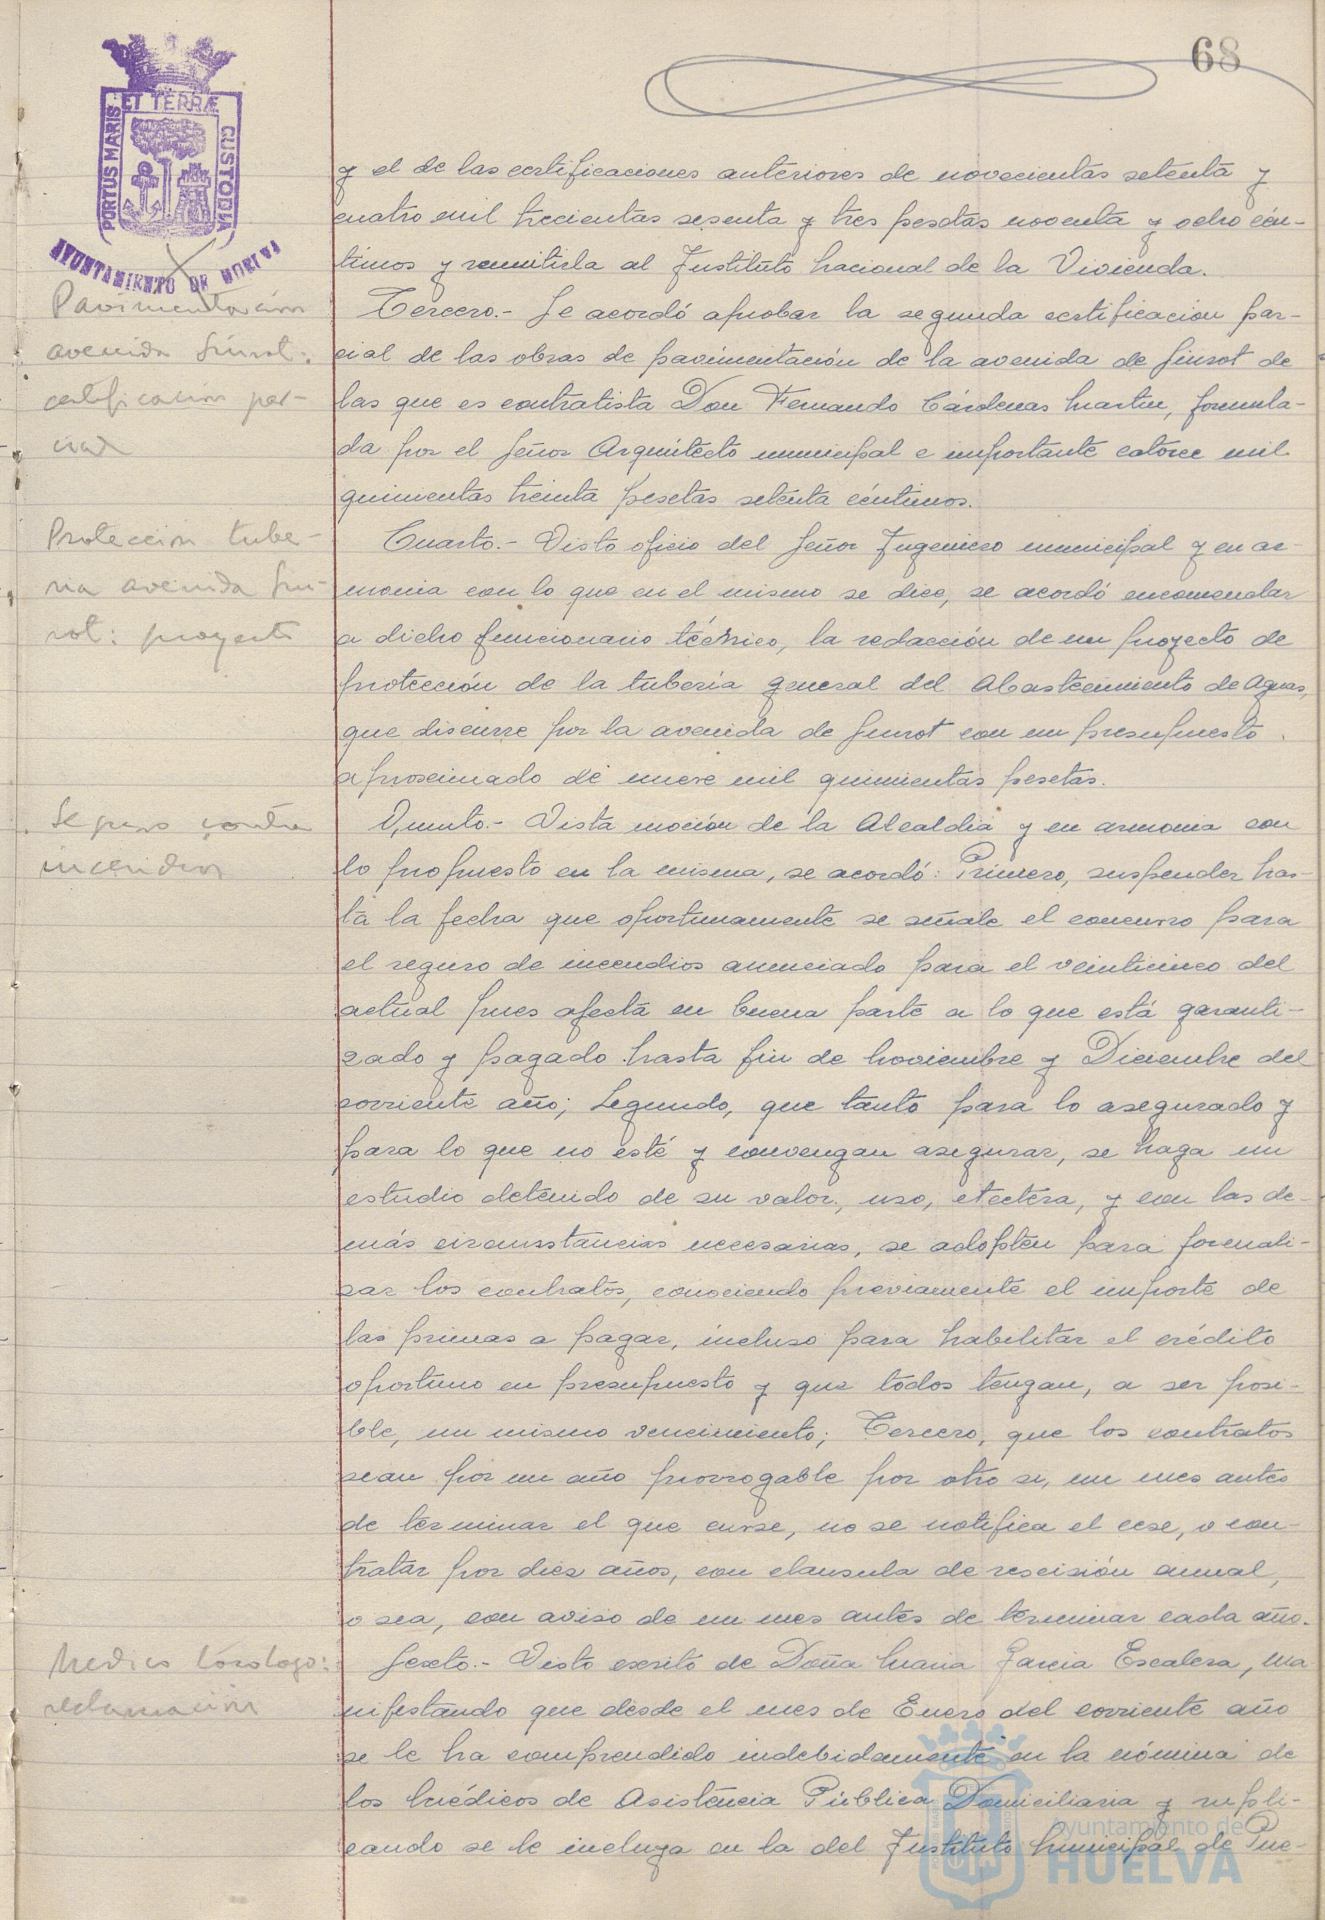 68
PORTUS MARIS ET TERRÆ CUSTODIA
AYUNTAMIENTO DE HUELVA
y el de las certificaciones anteriores de novecientas setenta y
cuatro mil trecientas sesenta y tres pesetas noventa y ocho cén-
timos y remitirla al Instituto Nacional de la Vivienda.
Pavimentación
avenida Guirot:
certificación par-
cial
Tercero.- Se acordó aprobar la segunda certificación par-
cial de las obras de pavimentación de la avenida de Guirot de
las que es contratista Don Fernando Cárdenas Martin, formula-
da por el Señor Arquitecto municipal e importante catorce mil
quinientas treinta pesetas setenta céntimos.
Protección tube-
ria avenida Gui-
rot: proyecto
Cuarto.- Visto oficio del Señor Ingeniero municipal y en ar-
monia con lo que en el mismo se dice, se acordó encomendar
a dicho funcionario técnico, la redacción de un proyecto de
protección de la tuberia general del Abastecimiento de Aguas,
que discurre por la avenida de Guirot con un presupuesto
aproximado de nueve mil quinientas pesetas.
Seguro contra
incendios
Quinto.- Vista moción de la Alcaldia y en armonia con
lo propuesto en la misma, se acordó: Primero, suspender has-
ta la fecha que oportunamente se señale el concurso para
el seguro de incendios anunciado para el veinticinco del
actual pues afecta en buena parte a lo que está garanti-
zado y pagado hasta fin de Noviembre y Diciembre del
corriente año; Segundo, que tanto para lo asegurado y
para lo que no esté y convengan asegurar, se haga un
estudio detenido de su valor, uso, etcétera, y con las de-
más circunstancias necesarias, se adopten para formali-
zar los contratos, conociendo previamente el importe de
las primas a pagar, incluso para habilitar el crédito
oportuno en presupuesto y que todos tengan, a ser posi-
ble, un mismo vencimiento; Tercero, que los contratos
sean por un año prorrogable por otro si, un mes antes
de terminar el que curse, no se notifica el cese, o con-
tratar por diez años, con clausula de rescisión anual,
o sea, con aviso de un mes antes de terminar cada año.
Medico Tocologo:
reclamación
Sexto.- Visto escrito de Doña Maria Garcia Escalera, ma-
nifestando que desde el mes de Enero del corriente año
se le ha comprendido indebidamente en la nómina de
los Médicos de Asistencia Pública Domiciliaria y supli-
cando se le incluya en la del Instituto Municipal de Pue-
ayuntamiento de
HUELVA